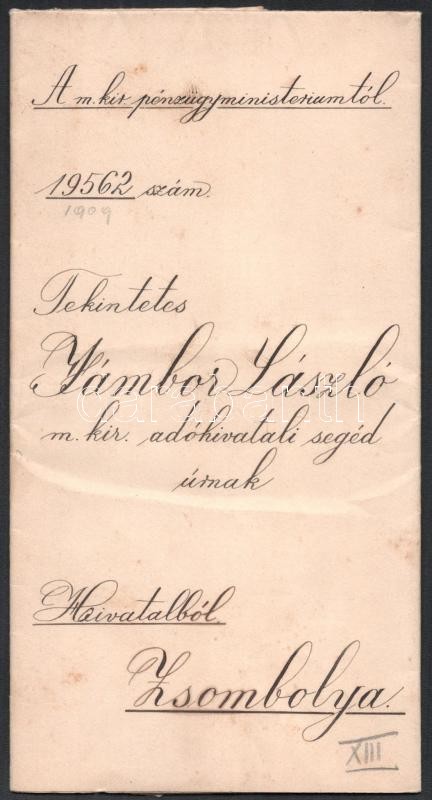 A m. kir. pénzügyministeriumtól.
19562 szám.
1909
Tekintetes
Jámbor László
m. kir. adóhivatali segéd
úrnak
Hivatalból.
Zsombolya.
XIII